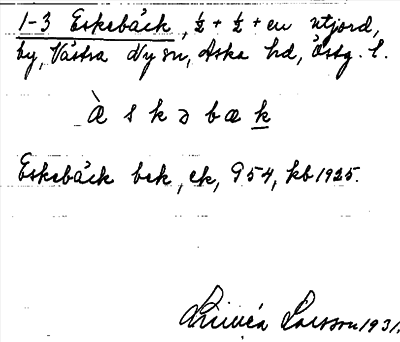 1-3 Eskebäck, ½ + ½ + en utjord,
by, Västra Ny sn, Aska hd, Östg. l.
Æ̀ s k ə b æ k
Eskebäck bek, ek, 954, kb 1925.
Linnéa Larsson 1931.